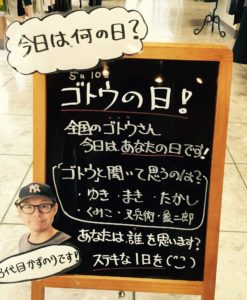 今日は、何の日?
5月10日
ゴトウの日!
全国のゴトウさん
今日はあなたの日です!
ゴトウと聞いて思うのは?
・ゆき・まき・たかし
・くみこ・又兵衛・象二郎
あなたは誰を思います?
ステキな1日を(^^)
3代目かずのりです!